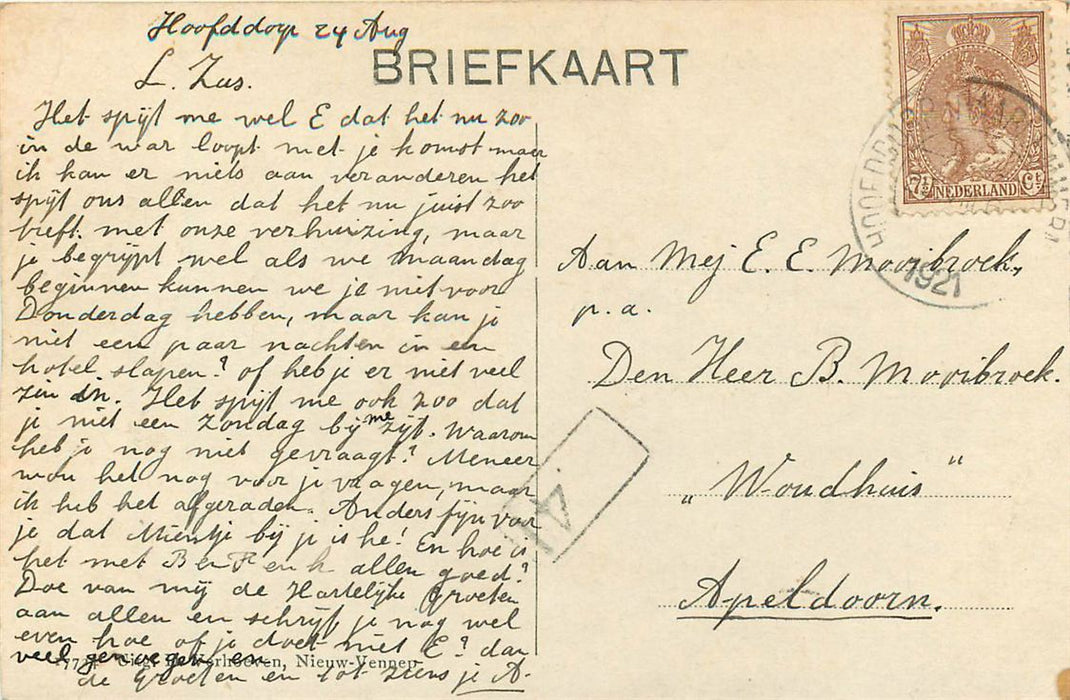 Hoofddorp 24 Aug
BRIEFKAART
L. Zus.
Het spijt me wel E dat het nu zoo
in de war loopt met je komst maar
ik kan er niets aan veranderen het
spijt ons allen dat het nu juist zoo
treft met onze verhuizing, maar
je begrijpt wel als we maandag
beginnen kunnen we je niet voor
Donderdag hebben, maar kan je
niet een paar nachten in een
hotel slapen? of heb je er niet veel
zin in. Het spijt me ook zoo dat
je niet een Zondag bij me zijt. Waarom
heb je nog niet gevraagt? Meneer
wou het nog voor je vragen, maar
ik heb het afgeraden. Anders fijn voor
je dat Mientje bij je is he! En hoe is
het met B en F en h allen goed?
Doe van mij de Hartelijke groeten
aan allen en schrijf je nog wel
even hoe of je doet met E? dan
veel genoegen en
de Groeten en tot ziens je A.
Uitg. Verhoeven, Nieuw-Vennep
7½ NEDERLAND Ct
1921
Aan Mej E. E. Mooibroek,
p.a.
Den Heer B. Mooibroek.
„Woudhuis"
Apeldoorn.